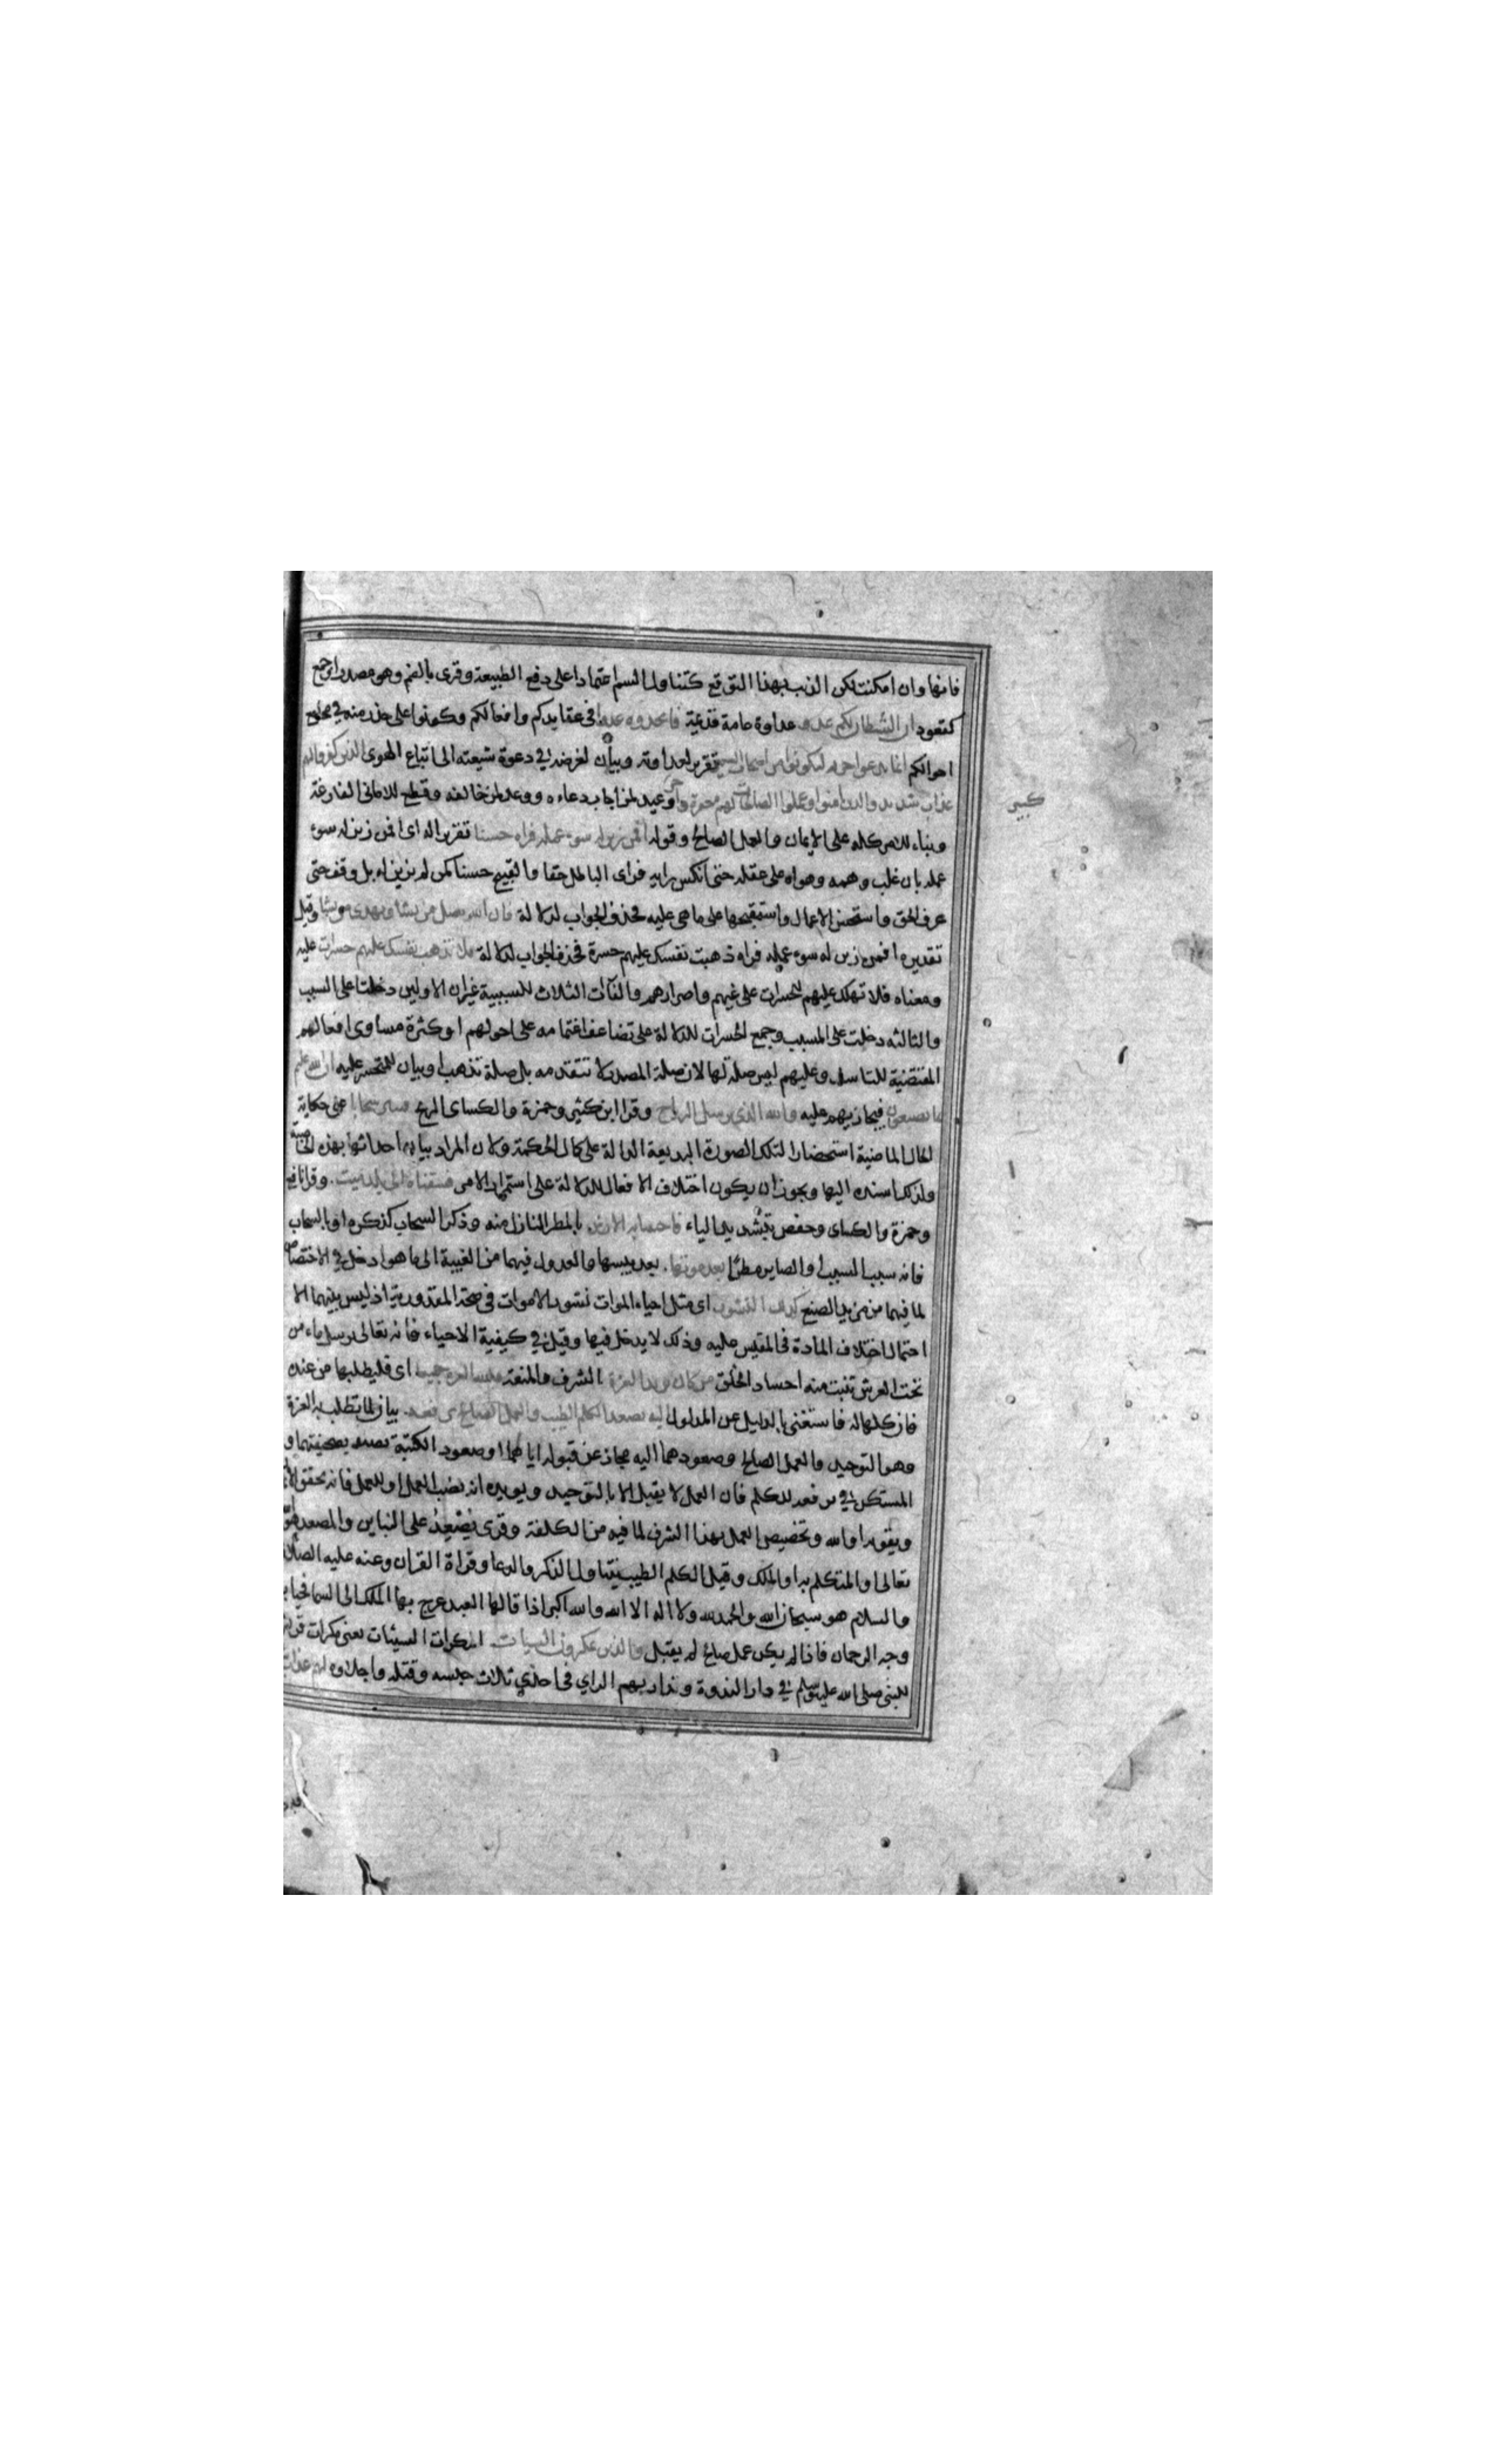 فانها وان امكنت لكن الذنب بهذا التوقع كتناول السم اعتمادا على دفع الطبيعة وقرى بالضم وهو مصدر او جمع
كقعود ان الشيطان لكم عدو عداوة عامة قديمة فاتخذوه عدوا في عقايدكم وافعالكم وكونوا على حذر منه في مجامع
احوالكم انما يدعوا حزبه ليكونوا من اصحاب السعير تقرير لعداوته وبيان لغرضه في دعوة شيعته الى اتباع الهوى الذين كفروا لهم
عذاب شديد والذين امنوا وعملوا الصالحات لهم مغفرة واجر وعيد لمن اجاب دعاءه ووعد لمن خالفه وقطع للاماني الفارغة
كبير
وبناء للامر كله على الايمان والعمل الصالح وقوله افمن زين له سوء عمله فراه حسنا تقرير له اى افمن زين له سوء
عمله بان غلب وهمه وهواه على عقله حتى انكس رايه فراى الباطل حقا والقبيح حسنا كمن لم يزين له بل وقف حتى
عرف الحق واستحسن الاعمال واستقبحها على ما هي عليه فحذف الجواب لدلالة فان الله يضل من يشا ويهدى من يشا وقيل
تقديره افمن زين له سوء عمله فراه ذهبت نفسك عليهم حسرة فحذف الجواب لدلالة فلا تذهب نفسك عليهم حسرات عليه
ومعناه فلا تهلك عليهم للحسرات على غيهم واصرارهم والفآت الثلاث للسببية غير ان الاولين دخلتا على السبب
والثالثه دخلت على المسبب وجمع الحسرات للدلالة على تضاعف اغتمامه على احولهم او كثرة مساوى افعالهم
المقتضية للتاسف وعليهم ليس صلة لها لان صلة المصدر لا تتقدمه بل صلة تذهب او بيان للمتحسر عليه ان الله عليم
بما يصنعون فيجازيهم عليه والله الذي يرسل الرياح وقرا ابن كثير وحمزة والكساى الريح فتثير سحابا على حكاية
الحال الماضية استحضارا لتلك الصورة البديعة الدالة على كمال الحكمة ولان المراد بيان احداثها بهذه الخاصية
ولذلك اسنده اليها ويجوز ان يكون اختلاف الافعال للدلالة على استمرار الامر فسقناه الى بلد ميت. وقرا نافع
وحمزة والكساى وحفص بتشديد الياء فاحيينا به الارض بالمطر النازل منه وذكر السحاب كذكره او بالسحاب
فانه سبب السبب او الصاير مطرا بعد موتها. بعد يبسها والعدول فيهما من الغيبة الى ما هو ادخل في الاختصاص
لما فيهما من مزيد الصنع كذلك النشور اى مثل احياء الموات نشور الاموات في صحة المقدورية اذ ليس بينهما الا
احتمال اختلاف المادة في المقيس عليه وذلك لا يدخل فيها وقيل في كيفية الاحياء فانه تعالى يرسل ماء من
تحت العرش تنبت منه اجساد الخلق من كان يريد العزة الشرف والمنعة فلله العزة جميعا اى فليطلبها من عنده
فان كلها له فاستغنى بالدليل عن المدلول اليه يصعد الكلم الطيب والعمل الصالح يرفعه. بيان لما تطلب به العزة
وهو التوحيد والعمل الصالح وصعودهما اليه مجاز عن قبوله اياهما او صعود الكتبة بصحيفتهما و
المستكن في يرفعه للكلم فان العمل لا يقبل الا بالتوحيد ويويده انه نصب العمل او للعمل فانه يحقق الا
ويقويه او لله وتخصيص العمل بهذا الشرف لما فيه من الكلفة وقرى يُصْعِدُ على البناين والمصعد هو
تعالى او المتكلم به او الملك وقيل الكلم الطيب يتناول الذكر والدعا وقراة القران وعنه عليه الصلاة
والسلام هو سبحان الله والحمد لله ولا اله الا الله والله اكبر اذا قالها العبد عرج بها الملك الى السما فحيا بها
وجه الرحمان فاذا لم يكن عمل صالح لم يقبل والذين يمكرون السيات. المكرات السيئات يعنى مكرات قريش
للنبى صلى الله عليه وسلم في دار الندوة وتداريهم الراي في احدي ثلاث حبسه وقتله واجلاوه لهم عذاب